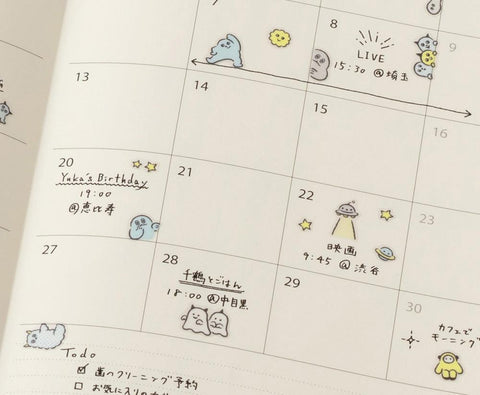 7
8
9
LIVE
15:30 @埼玉
13
14
15
16
20
Yuka's Birthday
19:00
@恵比寿
21
22
映画
9:45 @渋谷
23
27
28
千鶴とごはん
18:00 @中目黒
29
30
カフェで
モーニング
Todo
☑ 歯のクリーニング予約
☐ お気に入りの